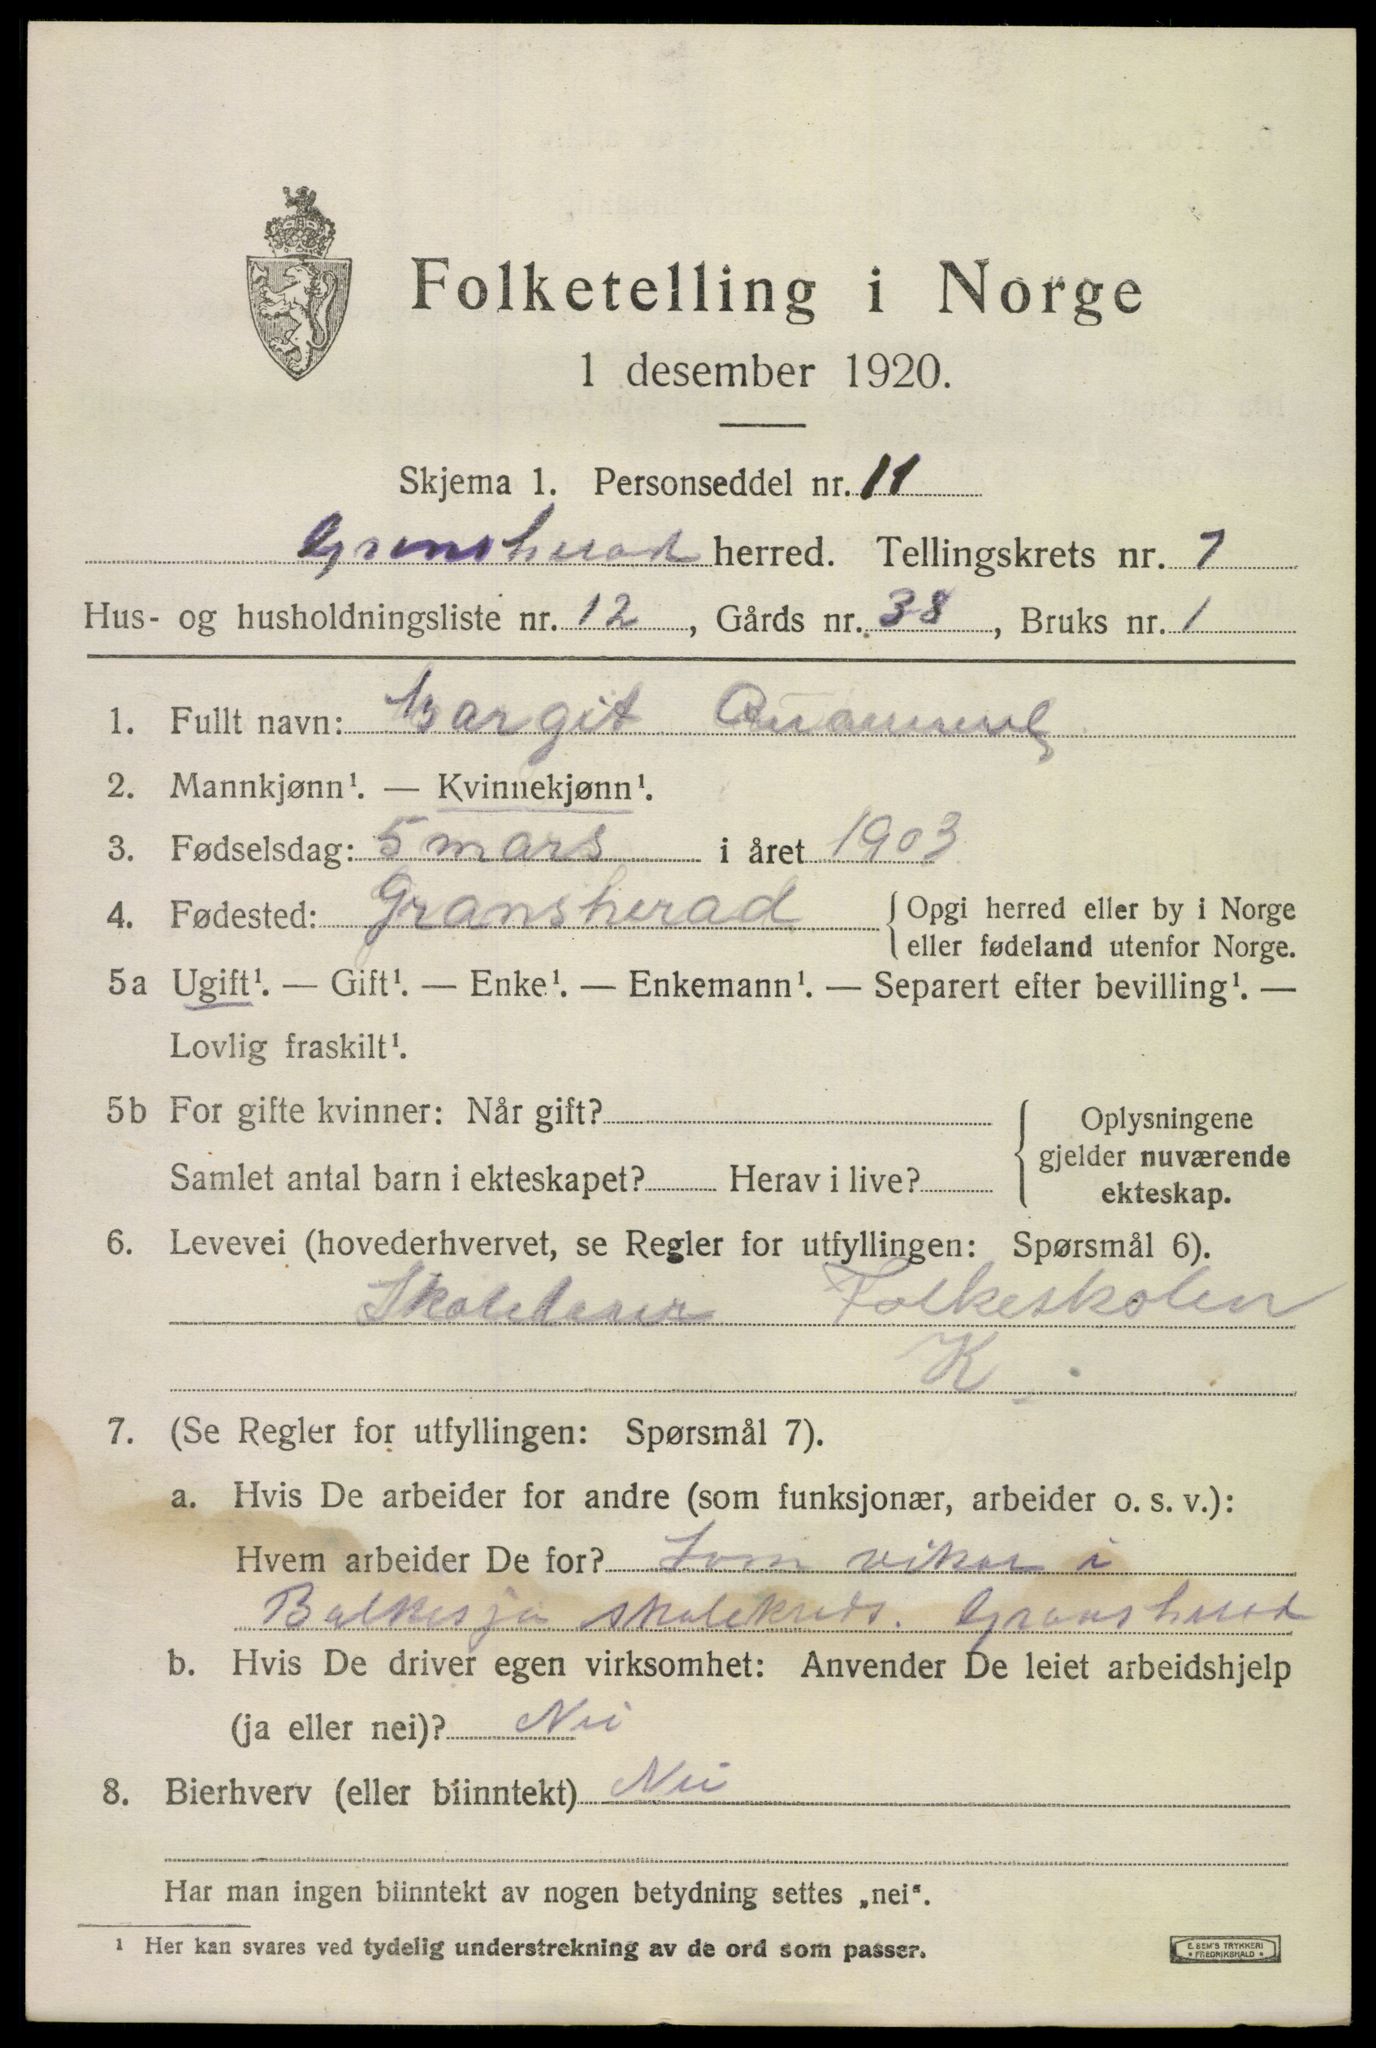 Folketelling i Norge
1 desember 1920.
Skjema 1. Personseddel nr. 11
Gransherad herred. Tellingskrets nr. 7
Hus- og husholdningsliste nr. 12, Gårds nr. 38, Bruks nr. 1
1. Fullt navn: Margit
2. Mannkjønn¹. — Kvinnekjønn¹.
3. Fødselsdag: 5 mars i året 1903
4. Fødested: Gransherad {Opgi herred eller by i Norge
eller fødeland utenfor Norge.
5a Ugift¹. — Gift¹. — Enke¹. — Enkemann¹. — Separert efter bevilling¹. —
Lovlig fraskilt¹.
5b For gifte kvinner: Når gift?
Samlet antal barn i ekteskapet? Herav i live?
{Oplysningene
gjelder nuværende
ekteskap.
6. Levevei (hovederhvervet, se Regler for utfyllingen: Spørsmål 6).
Folkeskolen
K
7. (Se Regler for utfyllingen: Spørsmål 7).
a. Hvis De arbeider for andre (som funksjonær, arbeider o. s. v.):
Hvem arbeider De for? Som vikar i
Bolkesjø skolekreds. Gransherad
b. Hvis De driver egen virksomhet: Anvender De leiet arbeidshjelp
(ja eller nei)? Nei
8. Bierhverv (eller biinntekt) Nei
Har man ingen biinntekt av nogen betydning settes „nei“.
¹ Her kan svares ved tydelig understrekning av de ord som passer.
E. SEM'S TRYKKERI
• FREDRIKSHALD •